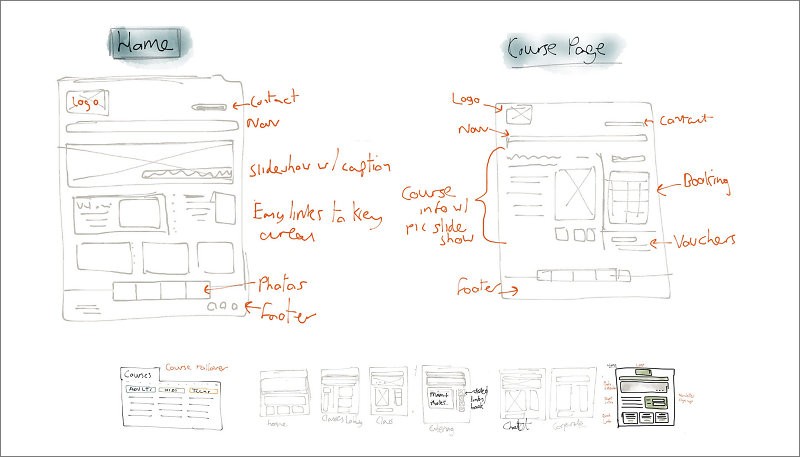 Home
Logo
Contact
Nav
Slideshow w/ caption
Easy links to key
areas
Photos
Footer
Course Page
Logo
Nav
Contact
Course
info w/
pic slide
show
Booking
Vouchers
Footer
Courses
Course rollover
ADULTS
KIDS
Home
Class
Chalet
Corporate